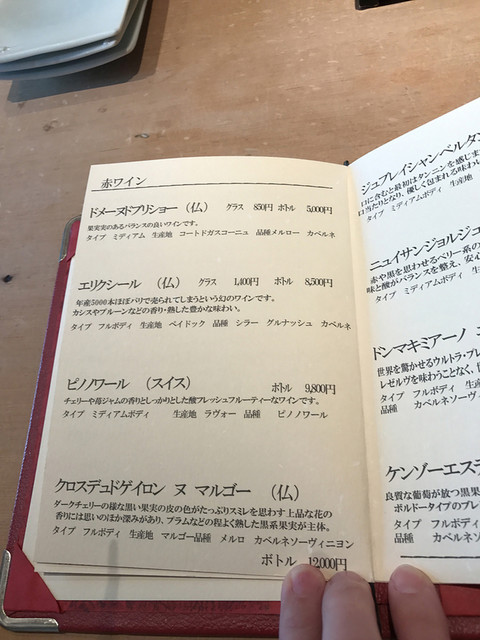 赤ワイン
ドメーヌドブリショー（仏） グラス 850円 ボトル 5,000円
果実実のあるバランスの良いワインです。
タイプ ミディアム 生産地 コートドガスコーニュ 品種メルロー カベルネ
エリクシール （仏） グラス 1,400円 ボトル 8,500円
年産5000本ほぼパリで売られてしまうという幻のワインです。
カシスやプルーンなどの香り・熟した豊かな味わい。
タイプ フルボディ 生産地 ペイドック 品種 シラー グルナッシュ カベルネ
ピノノワール （スイス） ボトル 9,800円
チェリーや苺ジャムの香りとしっかりとした酸フレッシュフルーティーなワインです。
タイプ ミディアムボディ 生産地 ラヴォー 品種 ピノノワール
クロスデュドゲイロン ヌ マルゴー （仏）
ダークチェリーの様な黒い果実の皮の色がたっぷりスミレを思わす上品な花の
香りには思いのほか深みがあり、プラムなどの程よく熟した黒系果実が主体。
タイプ フルボディ 生産地 マルゴー品種 メルロ カベルネソーヴィニヨン
ボトル 12,000円
ジュブレイシャンベルタン
口に含むと最初はタンニンを感じま
口当たりとなり、優しく包まれる味わい
タイプ ミディアムボディ 生産地
ニュイサンジョルジュ
赤や黒を思わせるベリー系の
味と酸がバランスを整え、安心
タイプ ミディアムボディ 生
ドンマキミアーノ
世界を驚かせるウルトラ・プレ
レゼルヴを味わうことなく、
タイプ フルボディ 生産
品種 カベルネソーヴ
ケンゾーエステ
良質な葡萄が放つ黒果
ボルドータイプのブレ
タイプ フルボディ
品種 カベルネソ